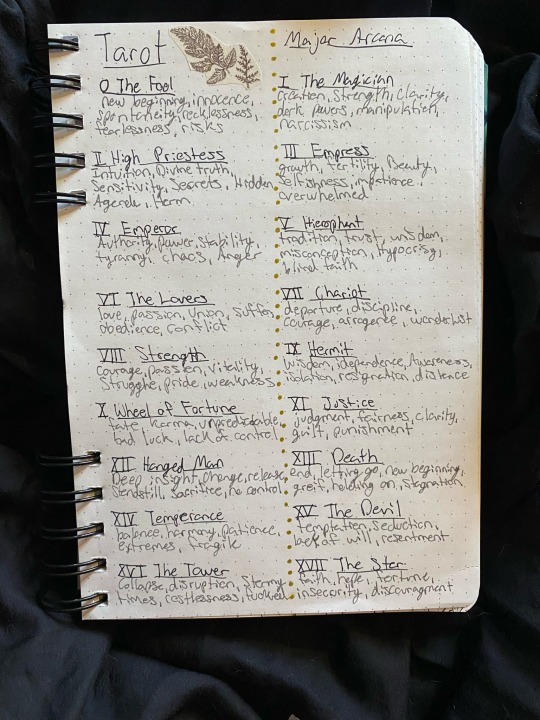 Tarot
Major Arcana
0 The Fool
new beginning, innocence,
spontaneity, recklessness,
fearlessness, risks
I The Magician
Creation, Strength, Clarity,
dark powers, manipulation,
narcissism
II High Priestess
Intuition, Divine truth,
Sensitivity, Secrets, Hidden
Agenda, Harm
III Empress
growth, fertility, Beauty,
selfishness, impatience,
overwhelmed
IV Emperor
Authority, power, stability,
tyranny, chaos, Anger
V Hierophant
tradition, trust, wisdom,
misconception, hypocrisy,
blind faith
VI The Lovers
love, passion, Union,
obedience, conflict
VII Chariot
departure, discipline,
courage, arrogence, wanderlust
VIII Strength
courage, passion, vitality,
Struggle, pride, weakness
IX Hermit
Wisdom, idependence, Awareness,
isolation, resignation, distance
X Wheel of Fortune
fate, karma, unpredictable,
bad luck, lack of control
XI Justice
judgment, fairness, clarity,
guilt, punishment
XII Hanged Man
Deep insight, change, release,
Standstill, sacrifice, no control
XIII Death
end, letting go, new beginning,
greif, holding on, stagnation
XIV Temperance
balance, harmony, patience,
extremes, fragile
XV The Devil
temptation, seduction,
lack of will, resentment
XVI The Tower
Collapse, disruption, Stormy
times, restlessness,
XVII The Star
faith, hope, fortune,
insecurity, discouragment